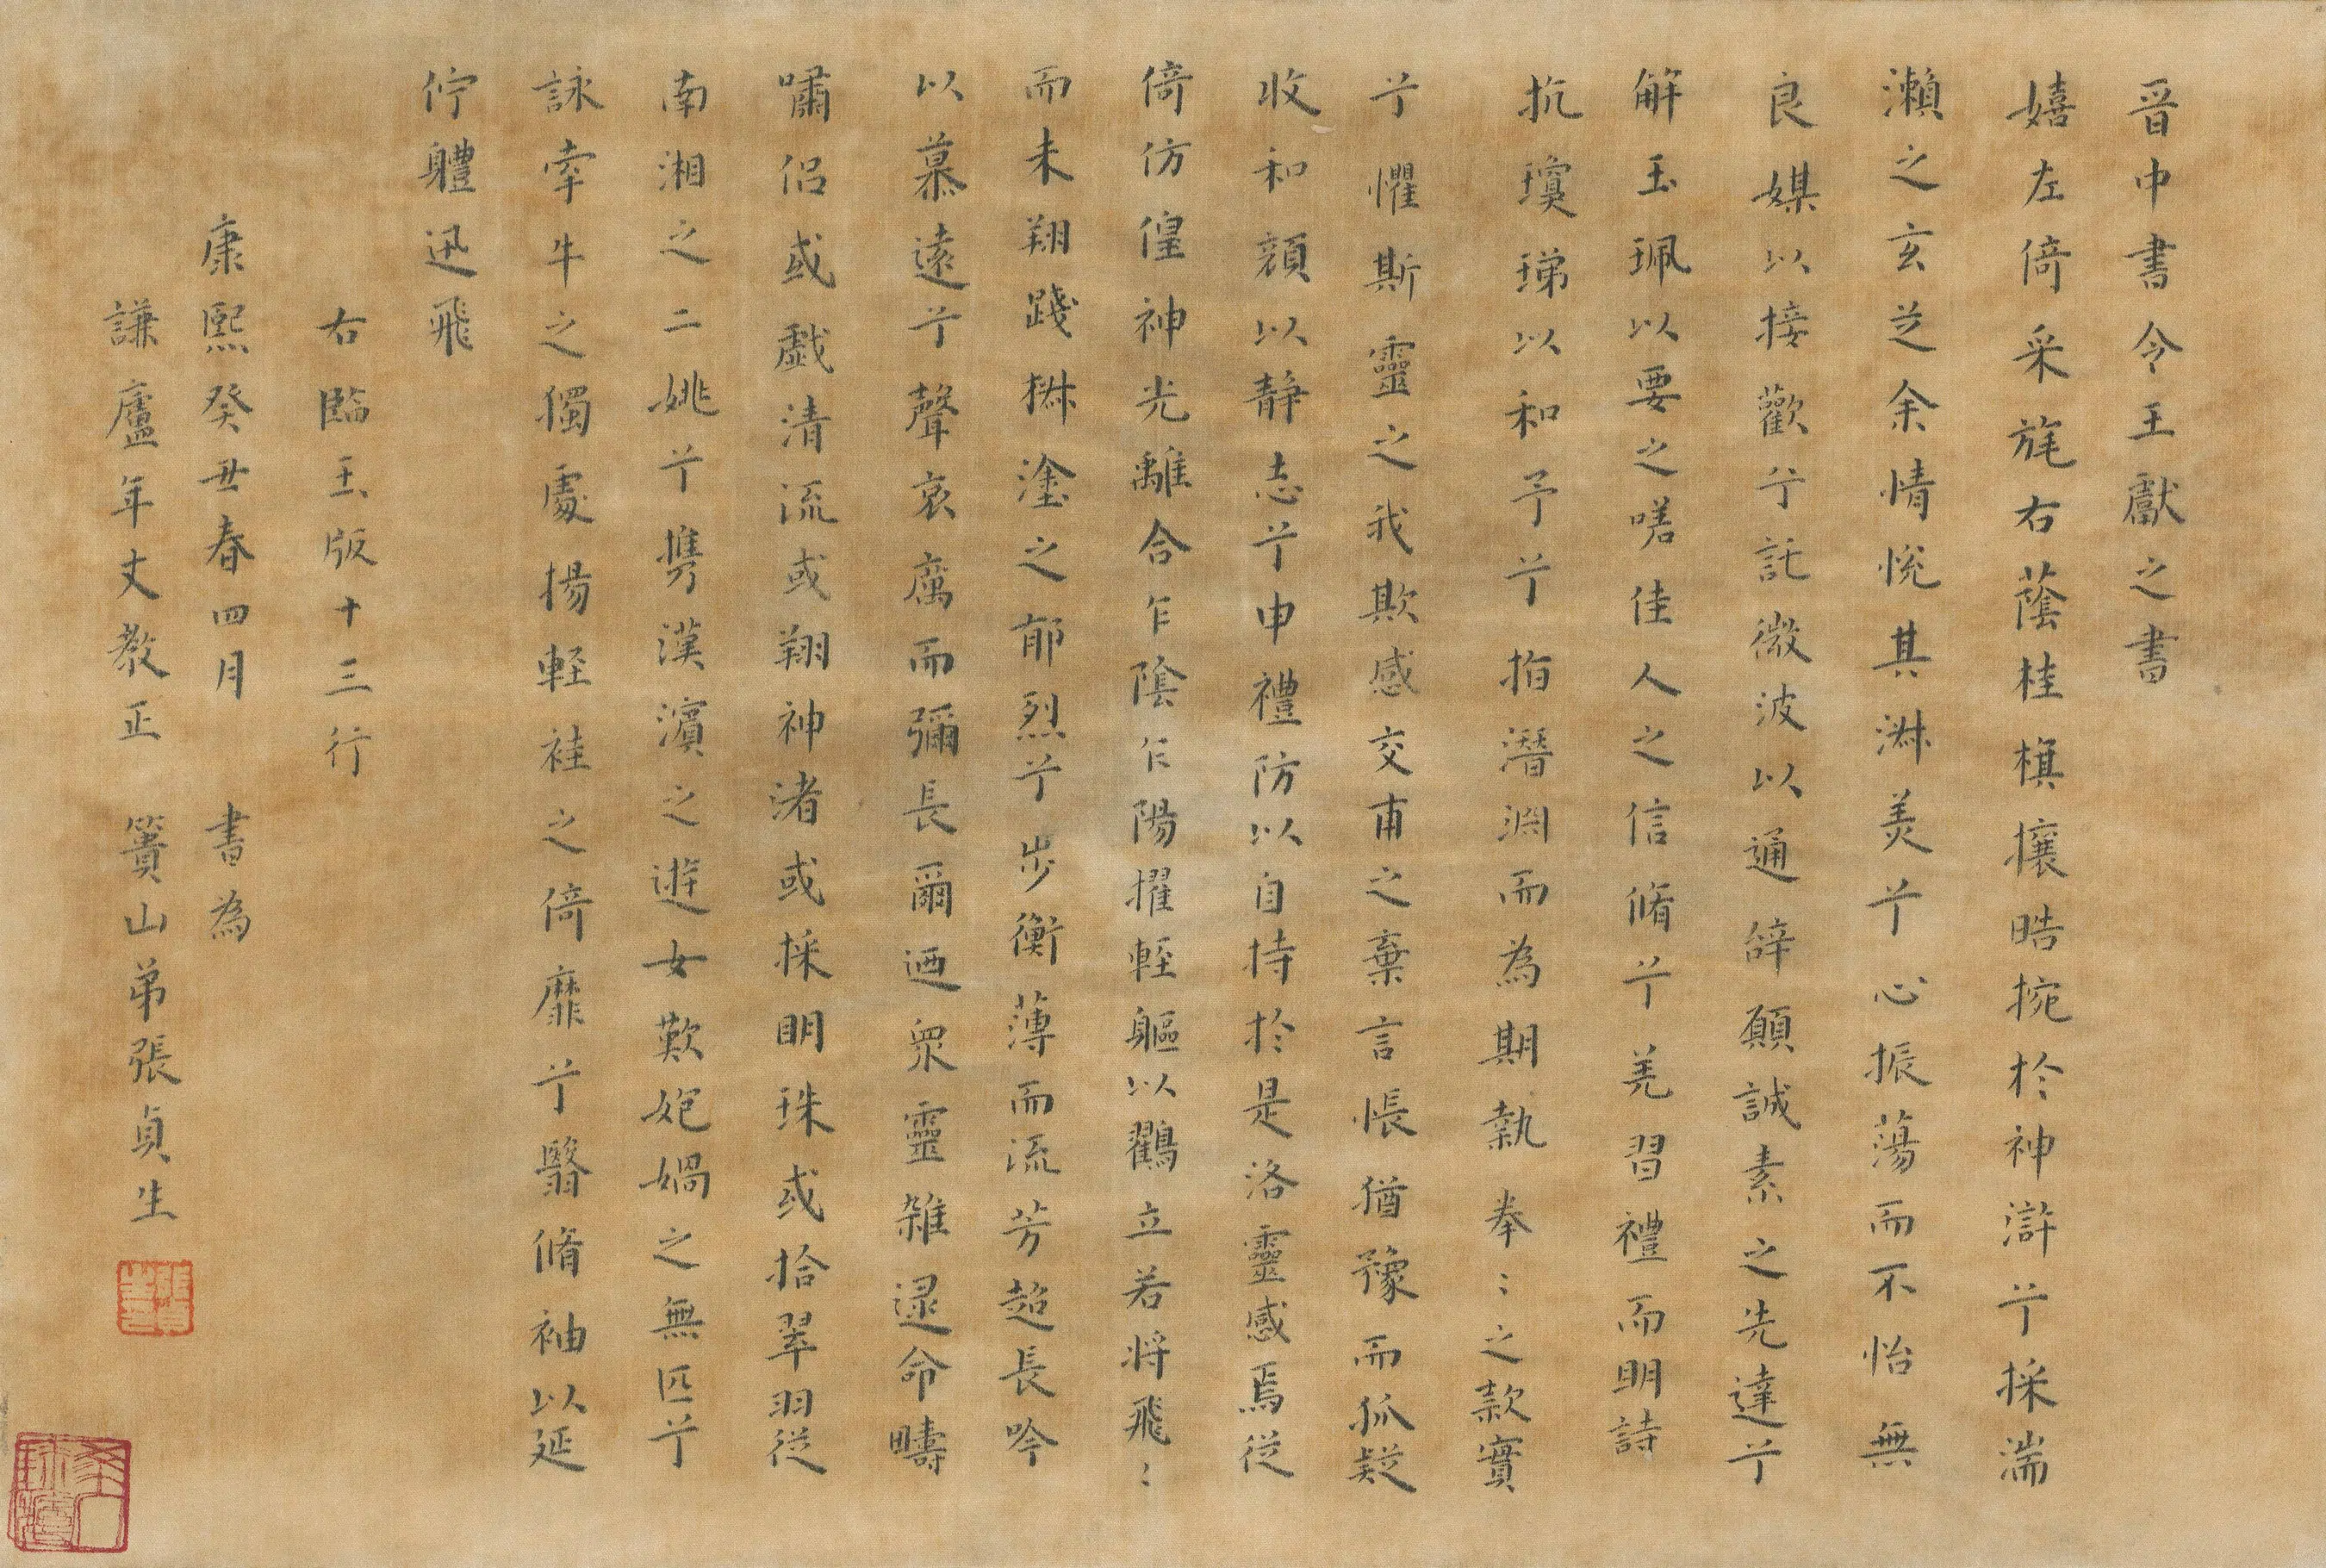 晉中書令王獻之書
嬉左倚采旄右蔭桂旗攘晧捥於神滸兮採湍
瀨之玄芝余情悅其淋美兮心振蕩而不怡無
良媒以接歡兮託微波以通辭願誠素之先達兮
解玉珮以要之嗟佳人之信脩兮羌習禮而明詩
抗瓊珶以和予兮指潛淵而為期執拳〻之款實
兮懼斯靈之我欺感交甫之棄言悵猶豫而狐疑
收和顏以静志兮申禮防以自持於是洛靈感焉從
倚仿偟神光離合乍陰乍陽擢輕軀以鸖立若将飛〻
而未翔踐椒塗之郁烈兮步衡薄而流芳超長吟
以慕遠兮聲哀厲而彌長爾迺眾靈雜遝命疇
嘯侶或戲清流或翔神渚或採明珠或拾翠羽從
南湘之二姚兮携漢濱之遊女歎匏媧之無匹兮
詠牽牛之獨處揚輕袿之倚靡兮翳脩袖以延
佇軆迅飛
右臨玉版十三行
康熙癸丑春四月 書為
謙廬年丈教正 簣山弟張貞生